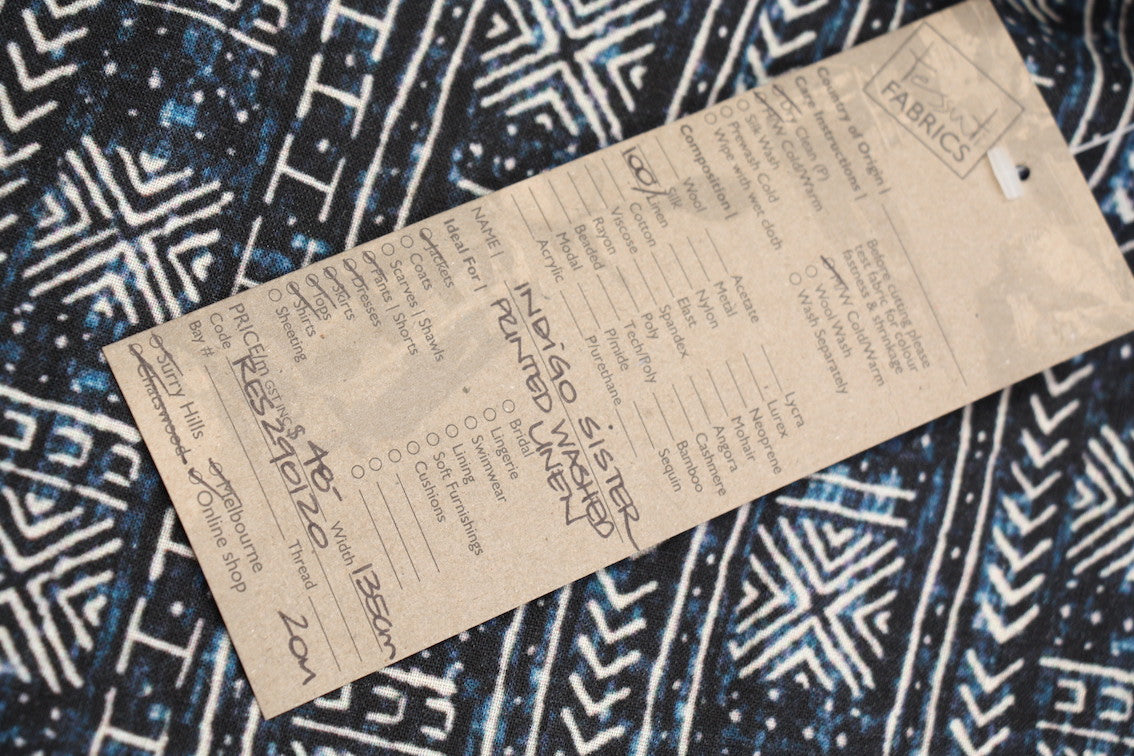 Tessuti
FABRICS
Country of Origin |
Care Instructions |
Dry Clean (P)
H/W Cold/Warm
Silk Wash
Prewash Cold
Wipe with wet cloth
Before cutting please
test fabric for colour
fastness & shrinkage
M/W Cold/Warm
Wool Wash
Wash Separately
Composition |
Wool
Silk
100% Linen
Cotton
Viscose
Rayon
Beaded
Modal
Acrylic
Acetate
Metal
Nylon
Elast
Spandex
Poly
Tech/Poly
P/mide
P/urethane
Lycra
Lurex
Neoprene
Mohair
Angora
Cashmere
Bamboo
Sequin
NAME | INDIGO SISTER
PRINTED WASHED
LINEN
Ideal For |
Jackets
Coats
Scarves | Shawls
Pants | Shorts
Dresses
Skirts
Tops
Shirts
Sheeting
Bridal
Lingerie
Swimwear
Lining
Soft Furnishings
Cushions
PRICE/m GST INC $ 48- Width 135cm
Code RES290120
Bay # Thread 20m
Surry Hills Melbourne
Chatswood Online shop